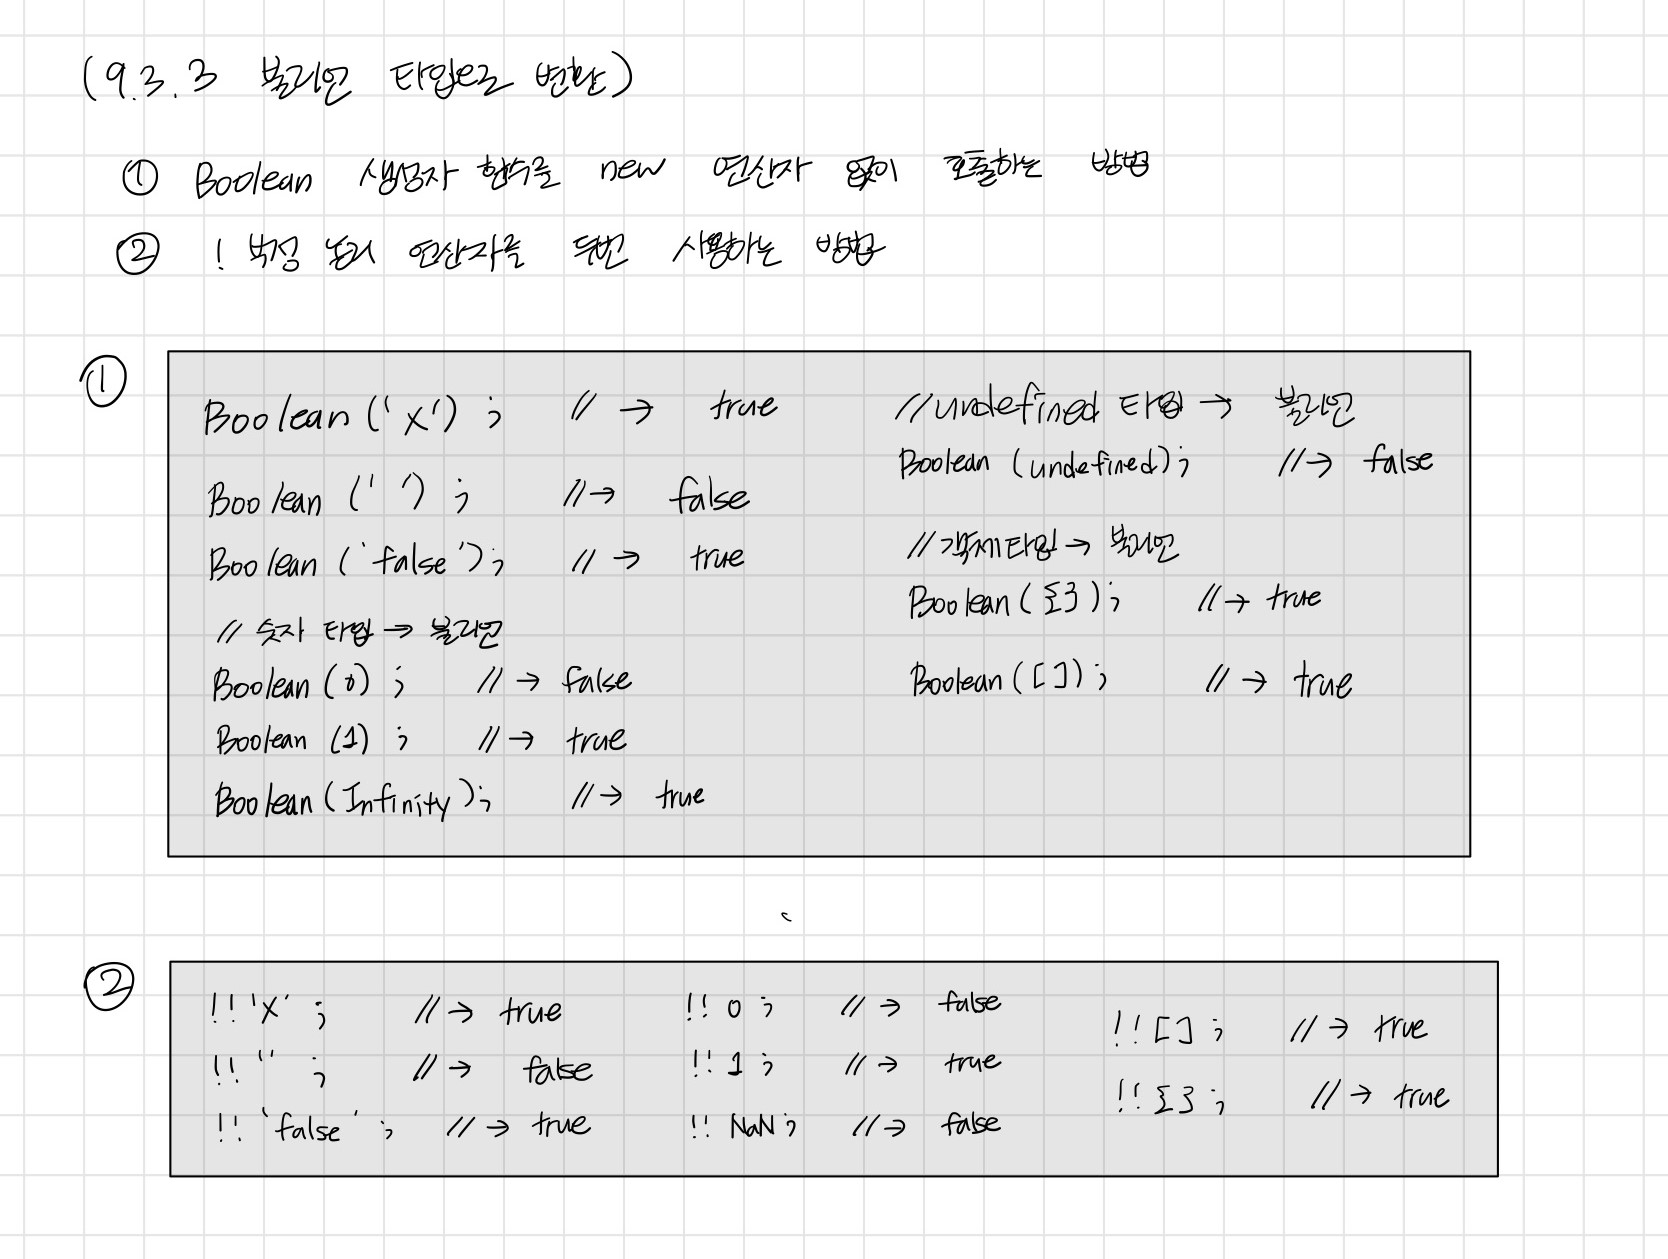 (9.3.3 불리언 타입으로 변환)
① Boolean 생성자 함수를 new 연산자 없이 호출하는 방법
② ! 부정 논리 연산자를 두번 사용하는 방법
①
Boolean('x'); // → true
Boolean(' '); // → false
Boolean('false'); // → true
// 숫자 타입 → 불리언
Boolean(0); // → false
Boolean(1); // → true
Boolean(Infinity); // → true
//undefined 타입 → 불리언
Boolean(undefined); // → false
//객체타입 → 불리언
Boolean({}); // → true
Boolean([]); // → true
②
!!'x'; // → true
!!''; // → false
!!'false'; // → true
!!0; // → false
!!1; // → true
!!NaN; // → false
!![]; // → true
!!{}; // → true